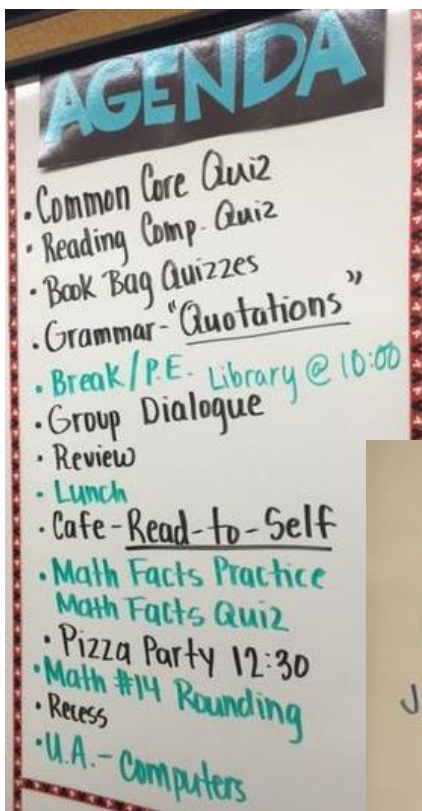 AGENDA
· Common Core Quiz
· Reading Comp. Quiz
· Book Bag Quizzes
· Grammar-"Quotations"
· Break/P.E. Library @ 10:00
· Group Dialogue
· Review
· Lunch
· Cafe-Read-to-Self
· Math Facts Practice
Math Facts Quiz
· Pizza Party 12:30
· Math #14 Rounding
· Recess
· U.A.- Computers
J